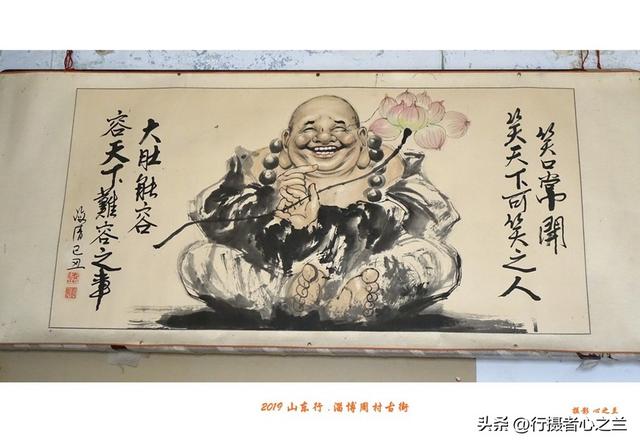 笑口常開
笑天下可笑之人
大肚能容
容天下難容之事
己丑
2019 山东行 .淄博周村古街
摄影 心之兰
头条 @行摄者心之兰